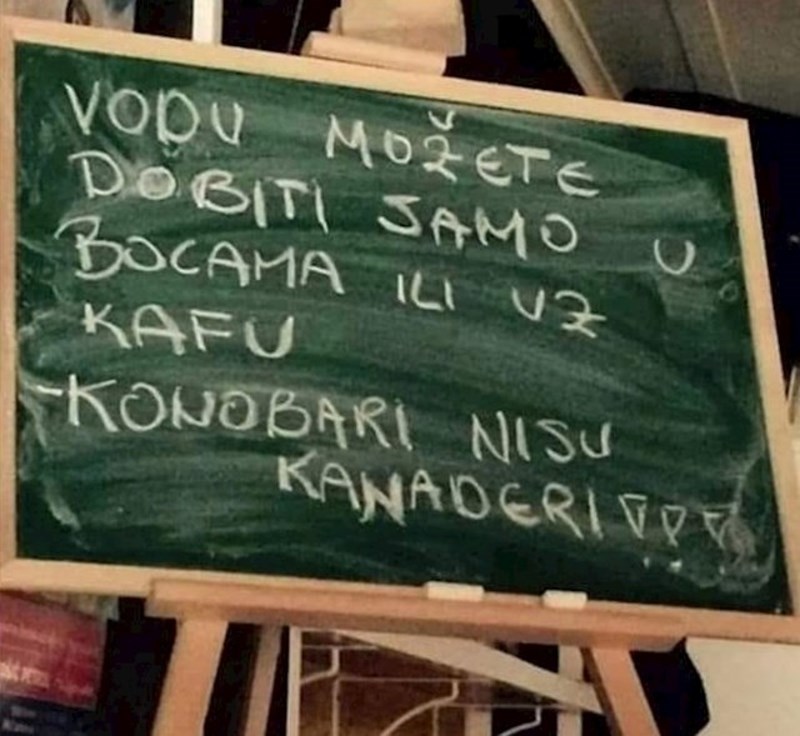 VODU MOŽETE
DOBITI SAMO U
BOCAMA ILI UZ
KAFU
-KONOBARI NISU
KANADERI!!!